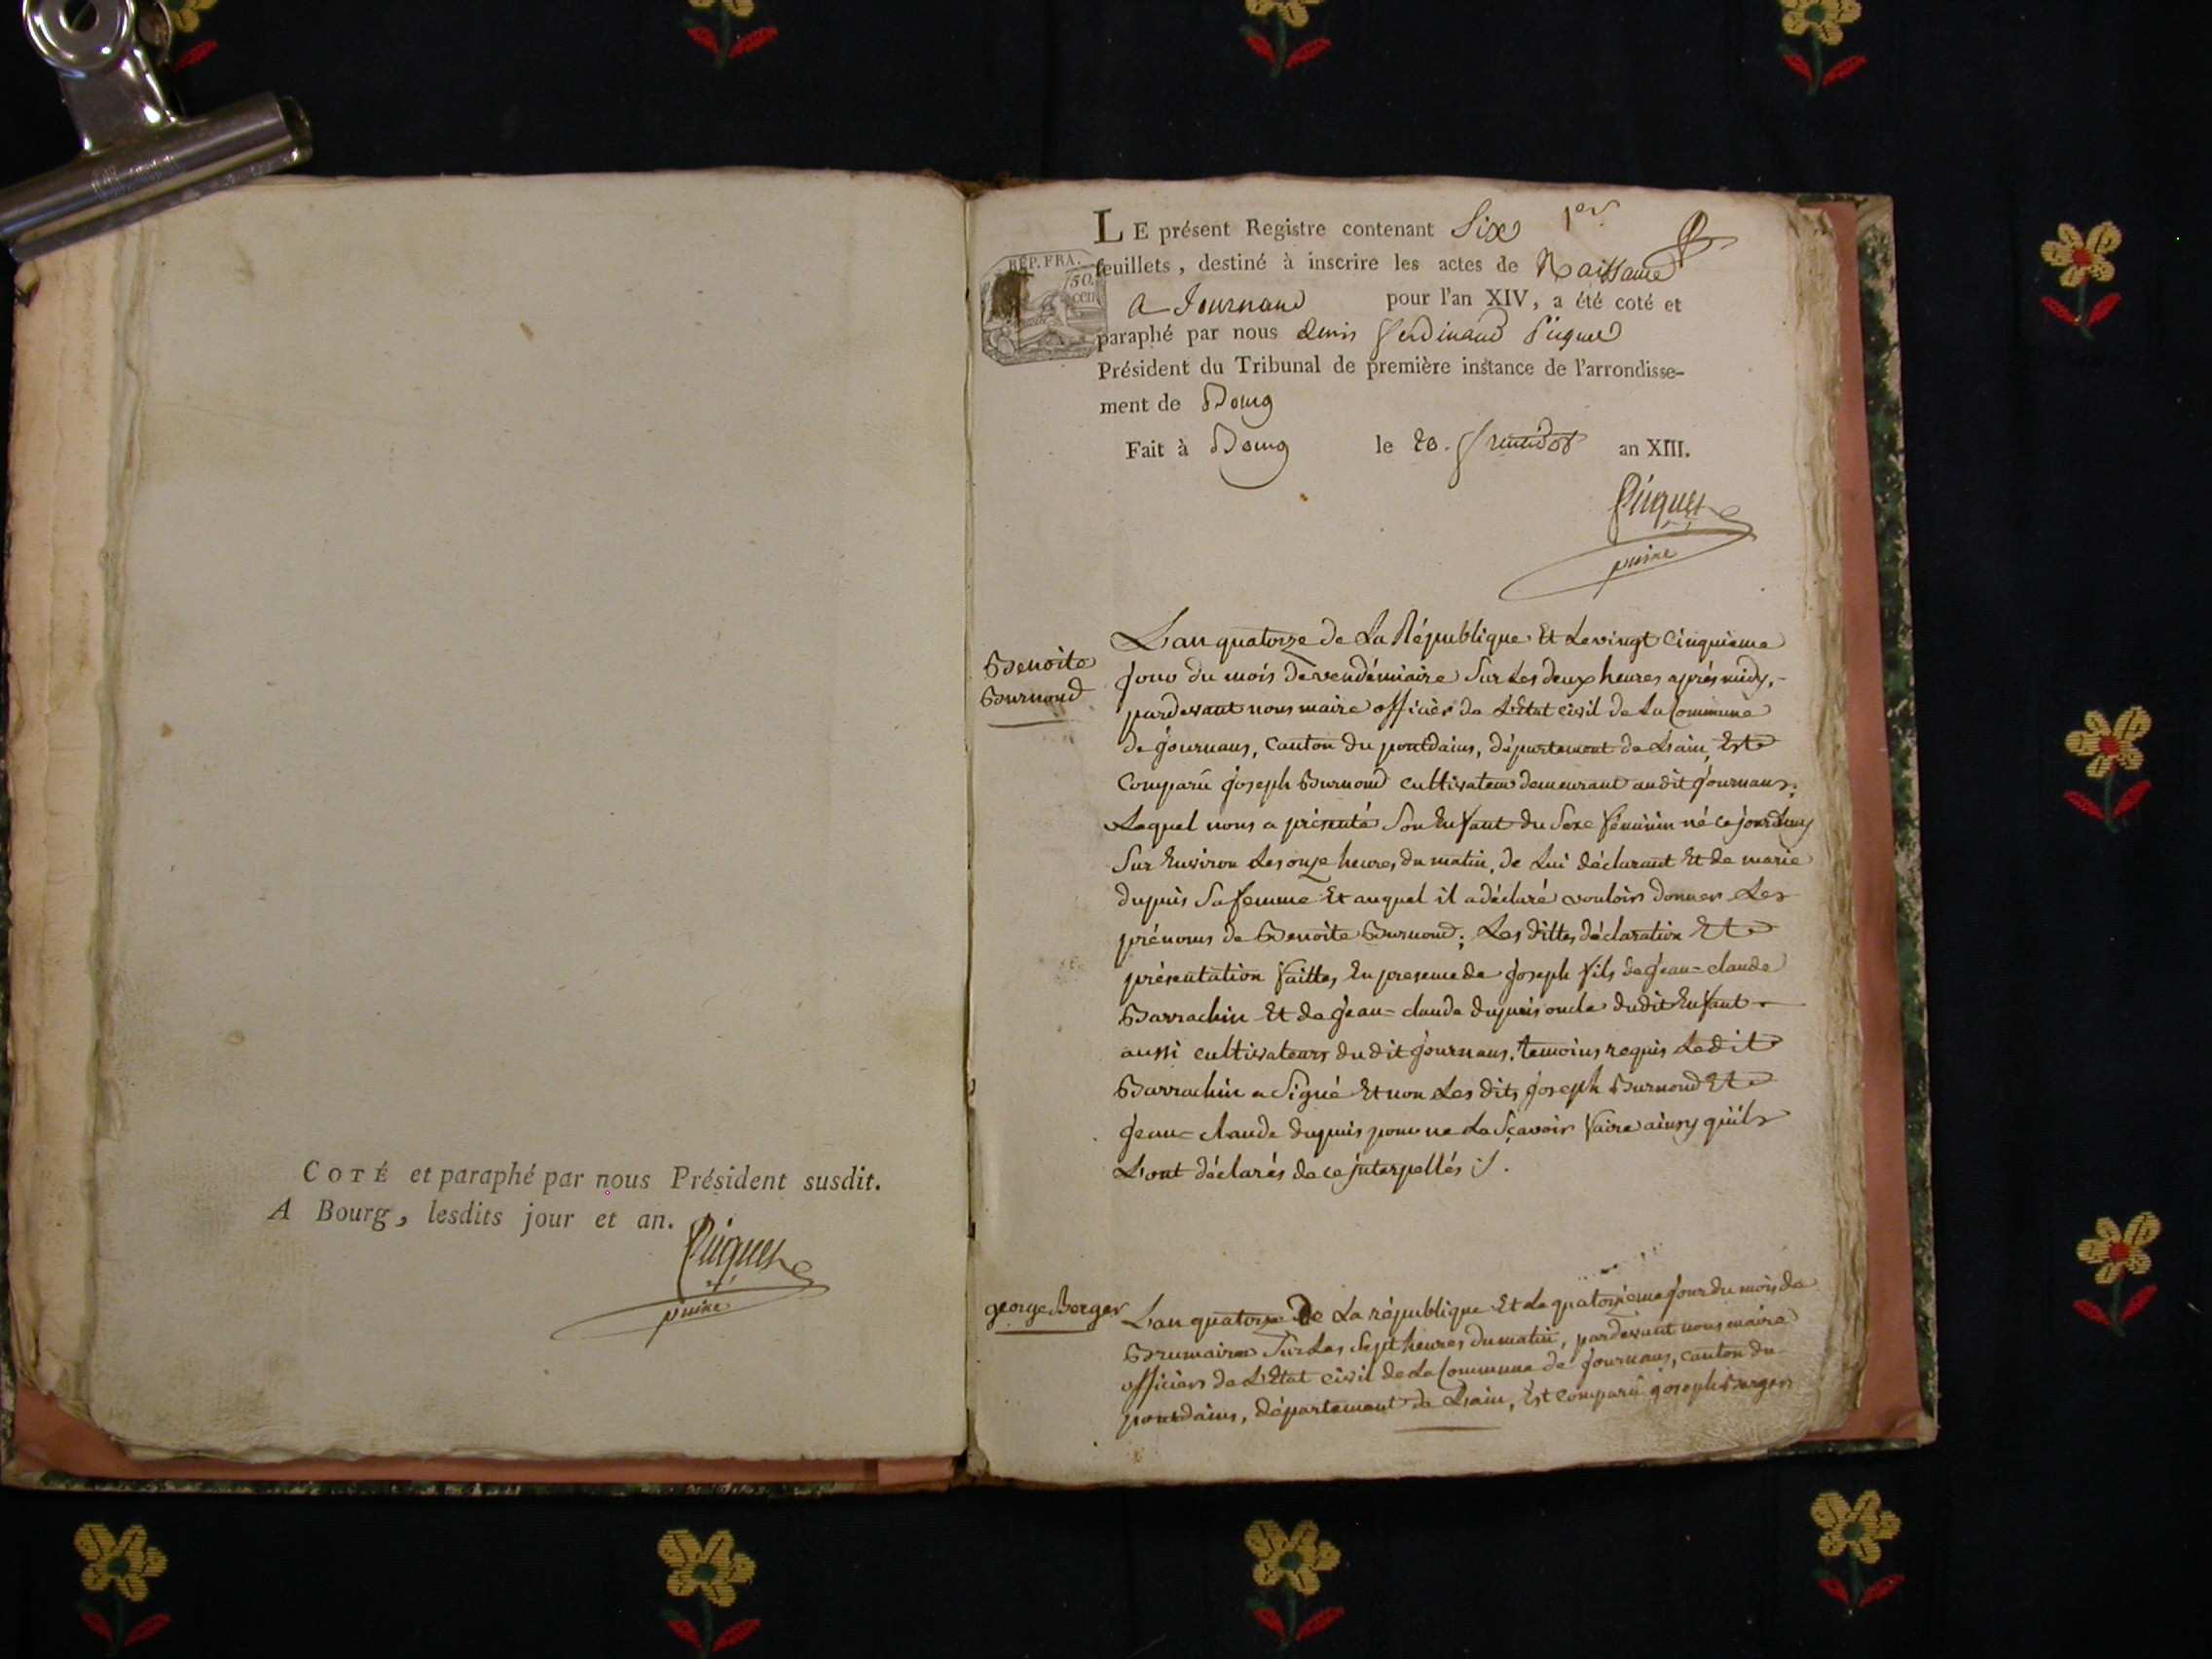 COTÉ et paraphé par nous Président susdit.
A Bourg, lesdits jour et an.
Picquet
puiné
LE présent Registre contenant Six 1er
feuillets, destiné à inscrire les actes de Naissance
REP. FRA.
50
cen
a Journans pour l'an XIV, a été coté et
paraphé par nous denis ferdinand Picquet
Président du Tribunal de première instance de l'arrondisse-
ment de Bourg
Fait à Bourg le 20. fructidor an XIII.
Picquet
puiné
Benoite
Burnond
L'an quatorze de La République Et Le vingt Cinquieme
jour du mois de vendémiaire Sur Les deux heures après midy,-
pardevant nous maire officier de L'Etat civil de La Commune
de journans, Canton du pontdains, département de L'ain, Est
Comparû joseph Burnond cultivateur demeurant audit journans;
Lequel nous a présenté Son Enfant du Sexe féminin né ce jourdhuy
Sur Environ Les onze heures du matin, de Lui déclarant Et de marie
dupuis Sa femme Et auquel il a déclaré vouloir donner Les
prénoms de Benoite Burnond; Les dittes déclaration Et
présentation faittes En presence de joseph fils de jean=claude
Barrachin Et de jean=claude dupuis oncle dudit Enfant
aussi cultivateurs du dit journans, temoins requis Ledit
Barrachin a Signé Et non Les dits joseph Burnond Et
jean=claude dupuis pour ne Le Sçavoir faire ainsy qu'ils
L'ont déclarés de ce interpellés ./.
george Berger
L'an quatorze De La république Et Le quatorzieme jour du mois de
Brumaire Sur Les Sept heures du matin, pardevant nous maire
officier de L'Etat civil de La Commune de journans, canton du
pontdains, département de L'ain, Est comparû joseph Berger